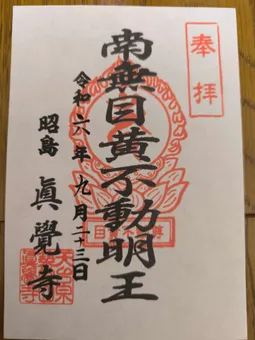 奉拝
南無目黄不動明王
令和六年九月二十三日
昭島 眞覺寺